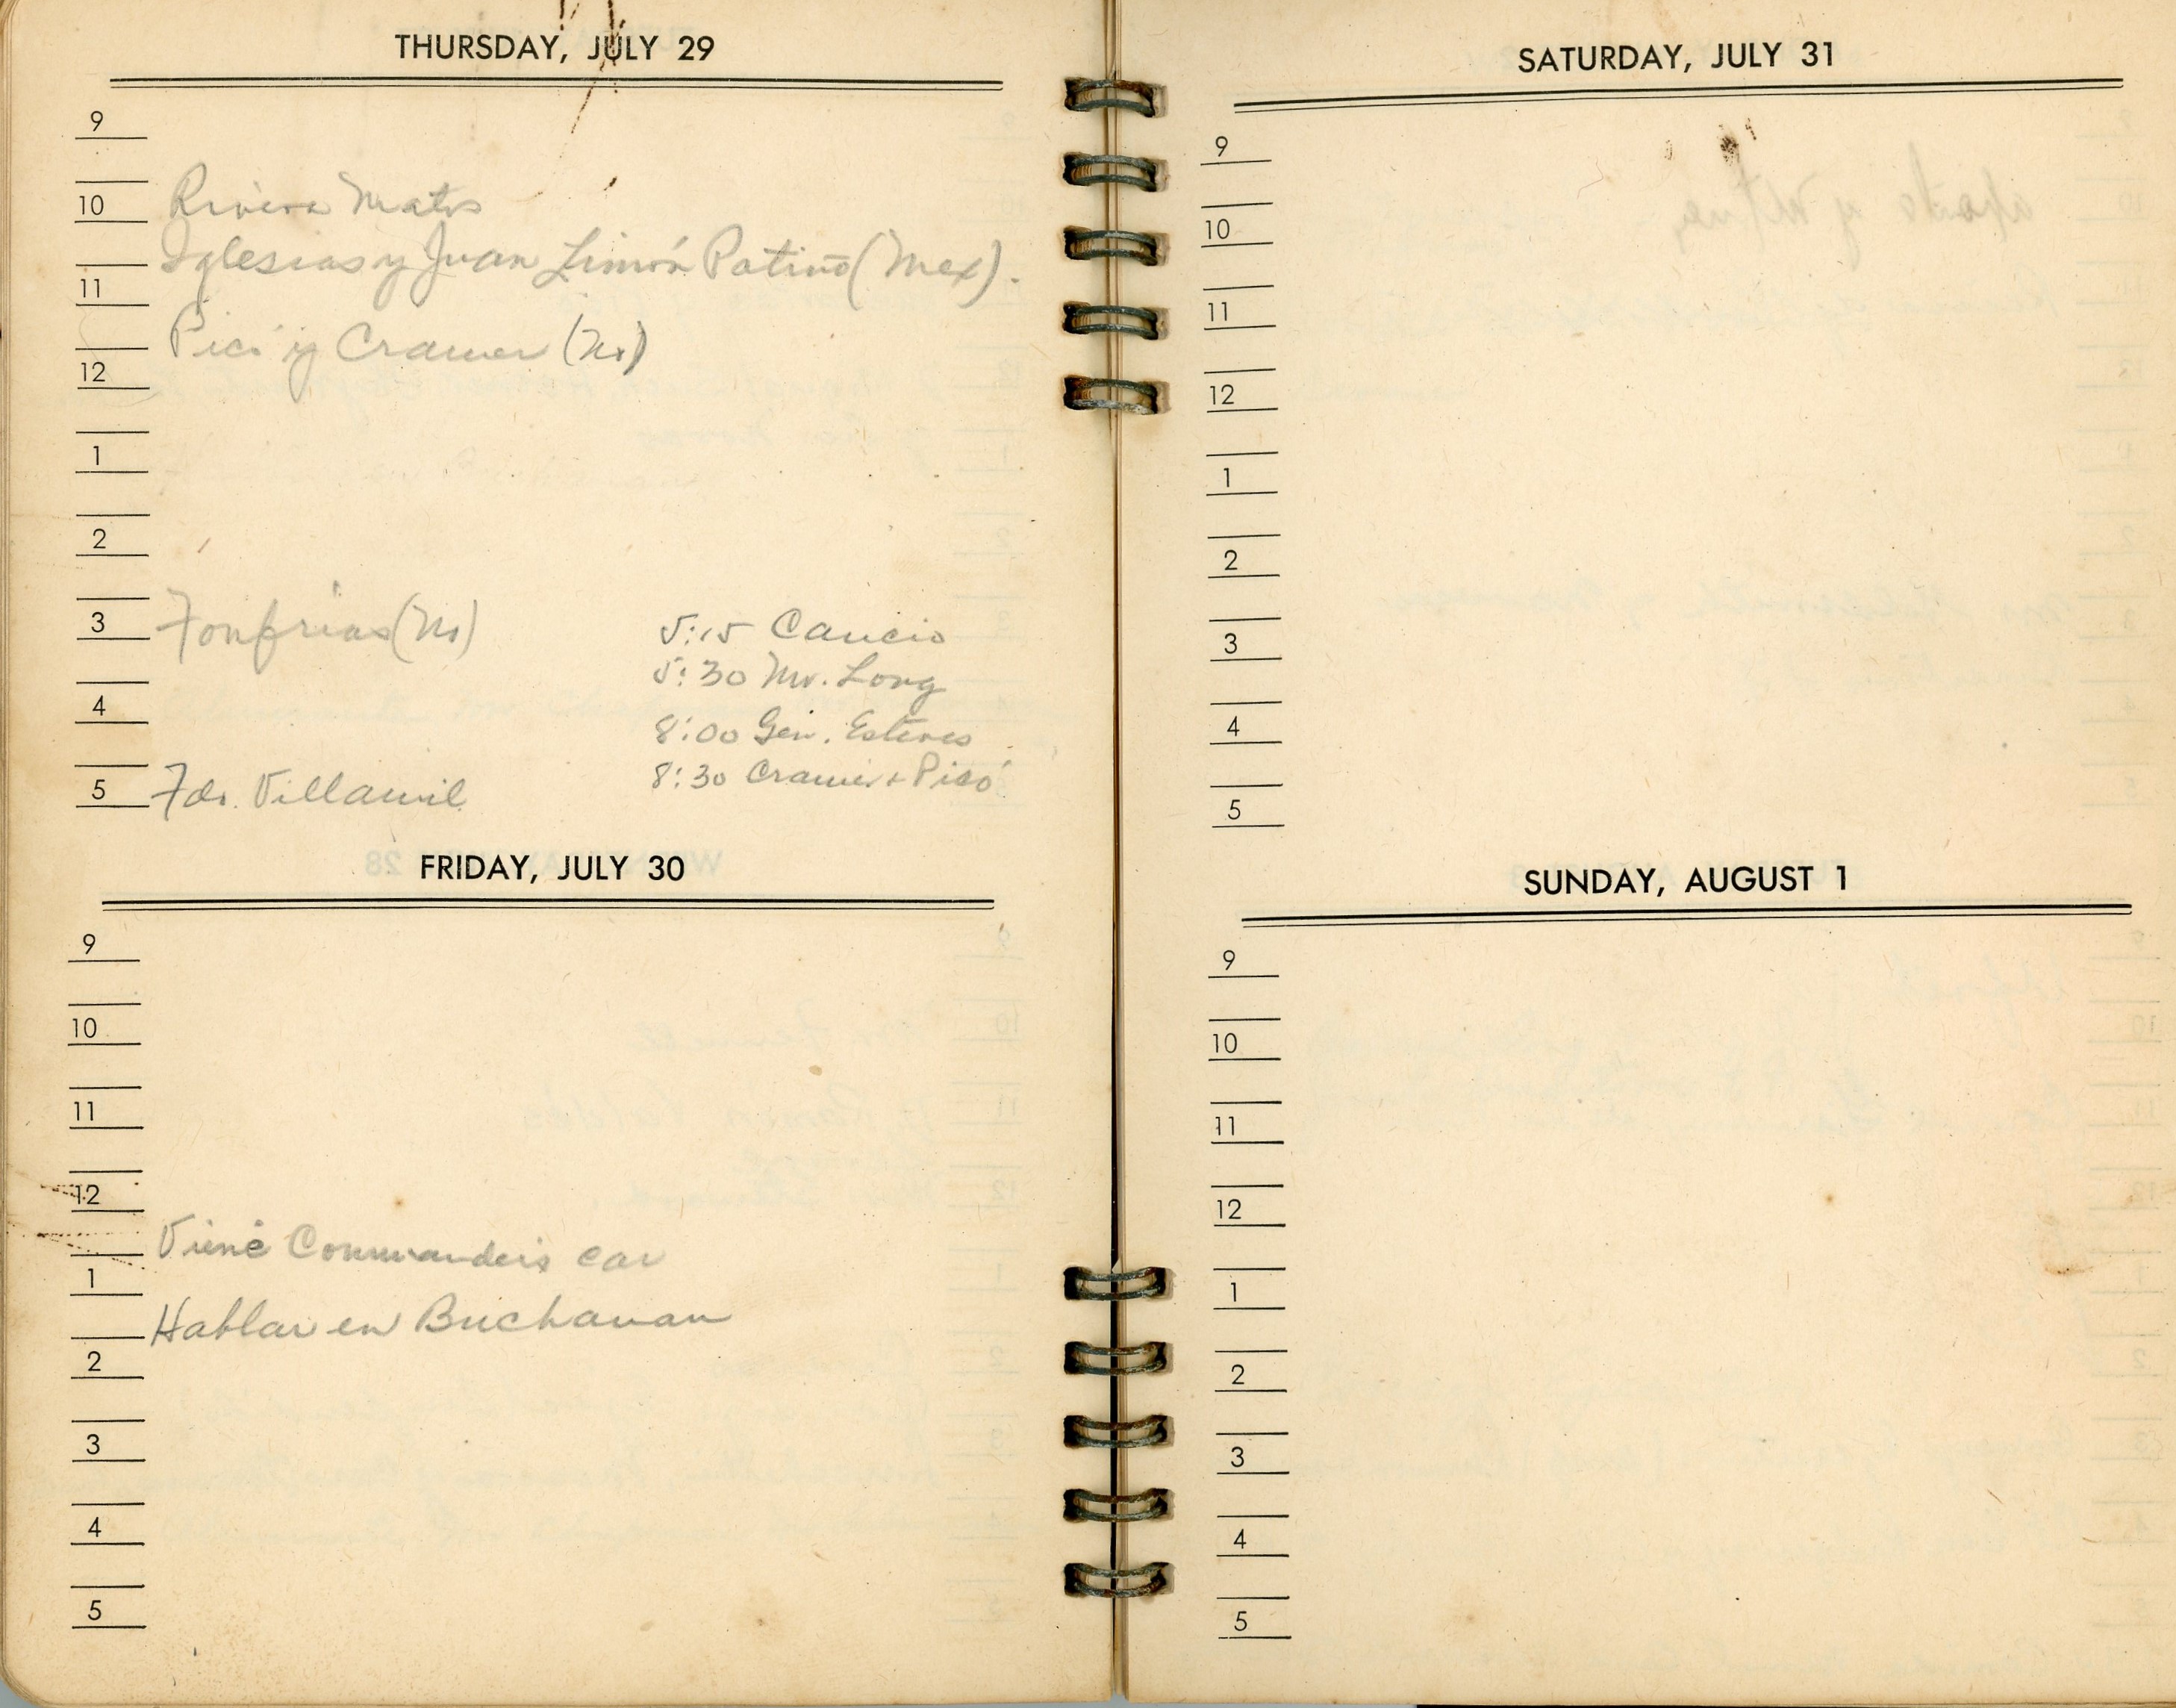 THURSDAY, JULY 29
9
10 Rivera Matos
Iglesias y Juan Limón Patiño (Mex).
11
Picó y Cramer (No)
12
1
2
3 Fonfrías (No)
5:15 Cancio
5:30 Mr. Long
4
8:00 Gen. Esteves
8:30 Cramer + Picó
5 Fdo. Villamil
FRIDAY, JULY 30
9
10
11
12
Viene Commander's car
1
Hablar en Buchanan
2
3
4
5
SATURDAY, JULY 31
9
10
11
12
1
2
3
4
5
SUNDAY, AUGUST 1
9
10
11
12
1
2
3
4
5